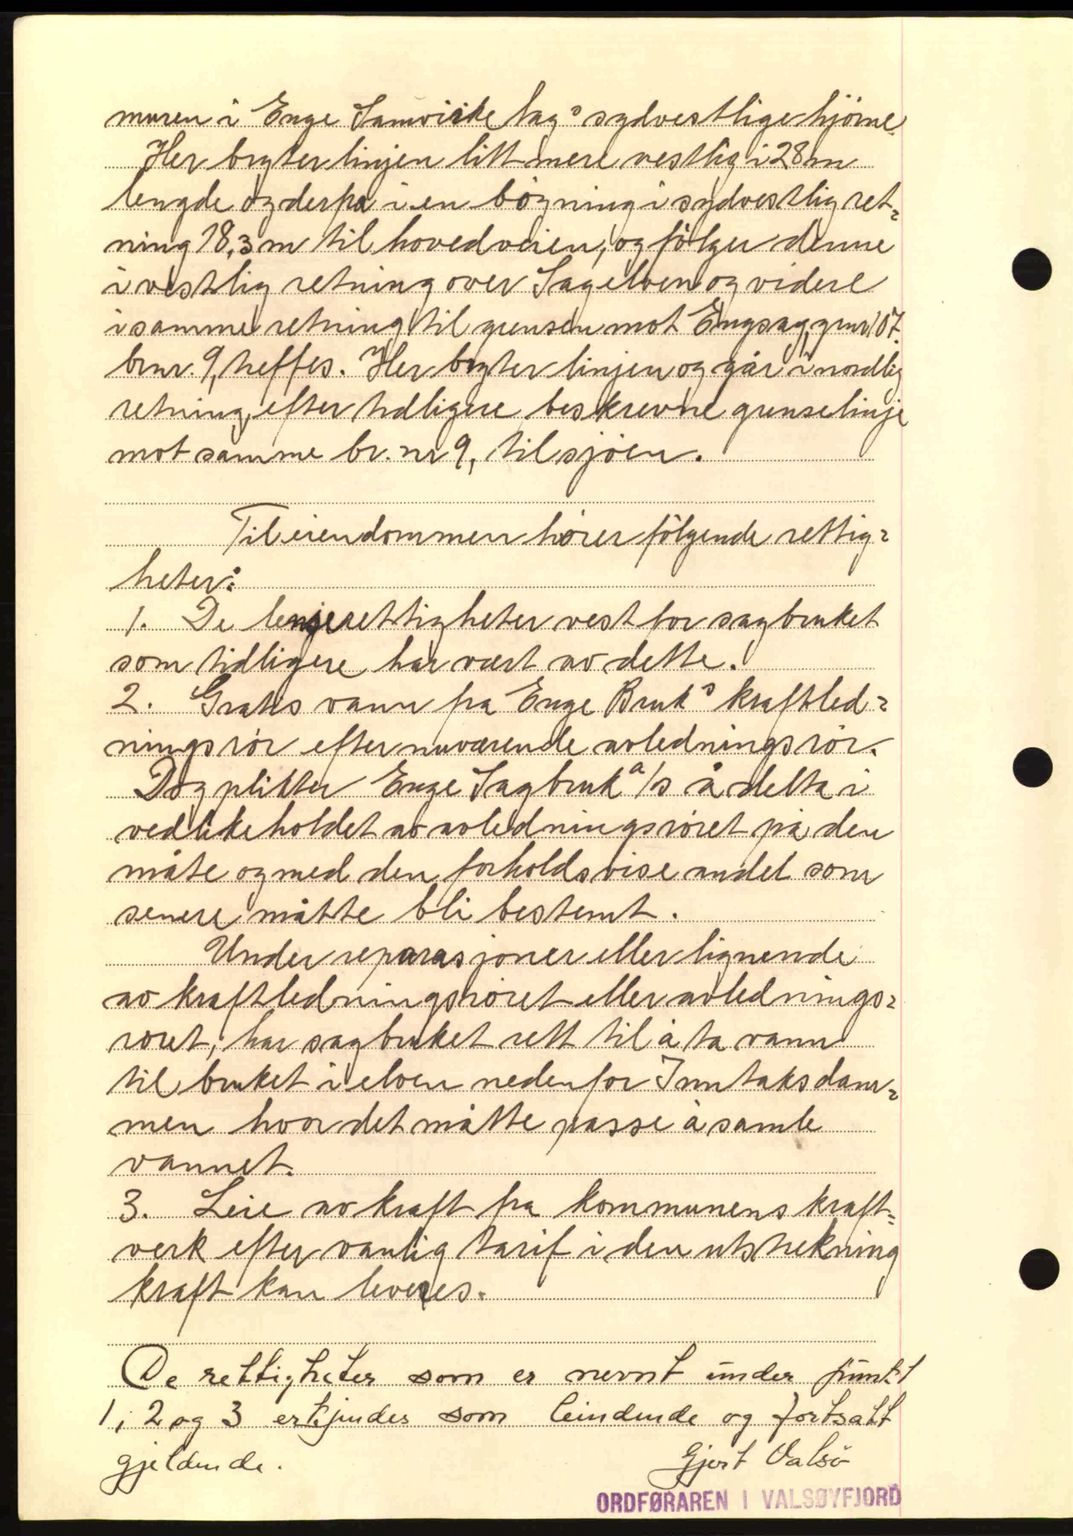 muren i Enge Samvirkelag's sydvestlige hjørne.
Her bryter linjen litt mere vestlig i 28 m
lengde og derpa i en bøgning i sydvestlig ret-
ning 18,3 m til hovedveien, og følger denne
i vestlig retning over Sagelven og videre
i samme retning til grensen mot Engsag, gnr. 107.
brnr. 9, treffes. Her bryter linjen og går i nordlig
retning, efter tidligere beskrevne grenselinje
mot samme br. nr 9, til sjøen.
Til eiendommen hører følgende rettig-
heter:
1. De lenserettigheter vest for sagbruket
som tidligere har vært av dette.
2. Gratis vann fra Enge Bruk's kraftled-
ningsrør efter nuværende avledningsrør.
Dog plikter Enge Sagbruk a/s å delta i
vedlikeholdet av avledningsrøret på den
måte og med den forholdsvise andel som
senere måtte bli bestemt.
Under reparasjoner eller lignende
av kraftledningsrøret eller avlednings-
røret, har sagbruket rett til å ta vann
til bruket i elven nedenfor Inntaksdam-
men hvor det måtte passe å samle
vannet.
3. Leie av kraft fra kommunens kraft-
verk efter vanlig tarif i den utstrekning
kraft kan leveres.
De rettigheter som er nevnt under punkt
1, 2 og 3 erkjendes som bindende og fortsatt
gjeldende. Gjert Valsø
ORDFØRAREN I VALSØYFJORD